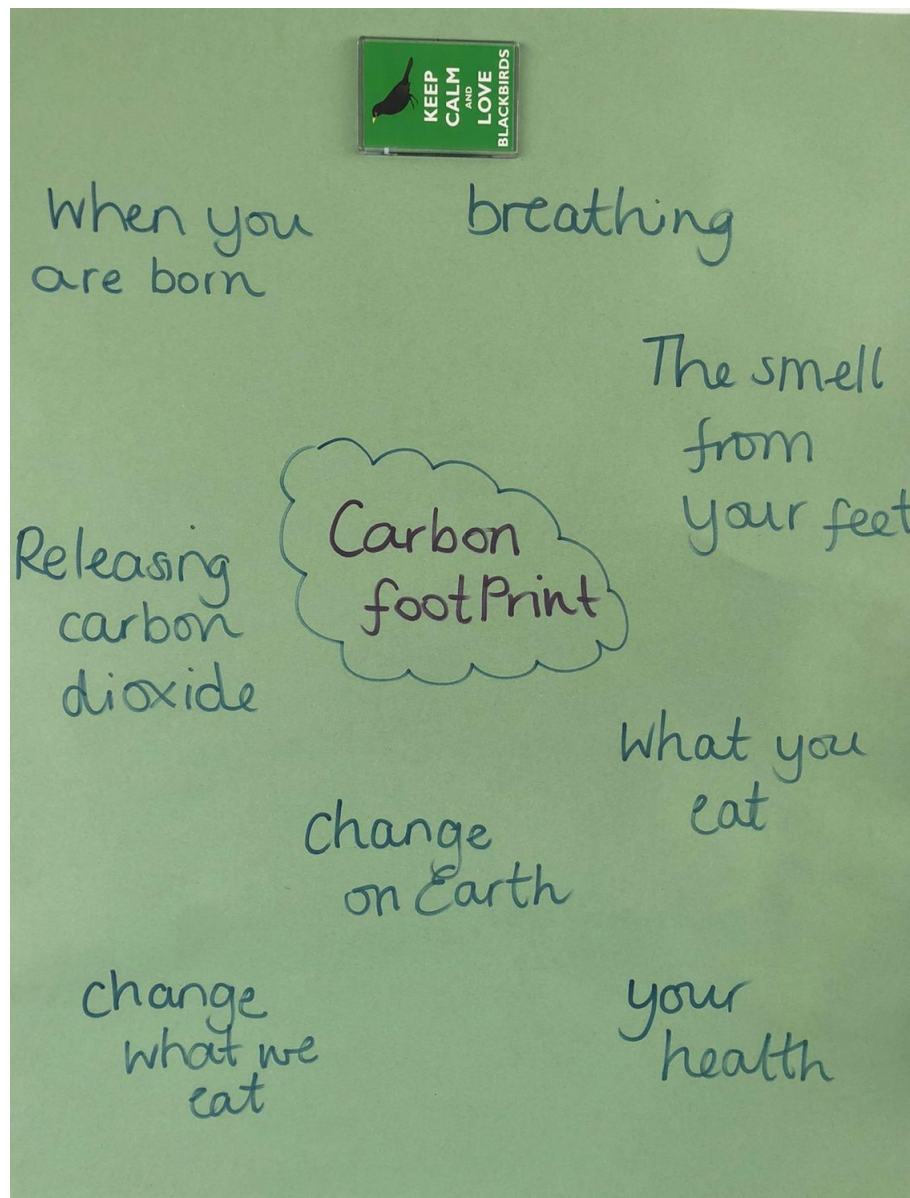 KEEP
CALM
AND
LOVE
BLACKBIRDS
When you
are born
breathing
The smell
from
your feet
Carbon
footPrint
Releasing
carbon
dioxide
What you
eat
change
on Earth
change
what we
eat
your
health